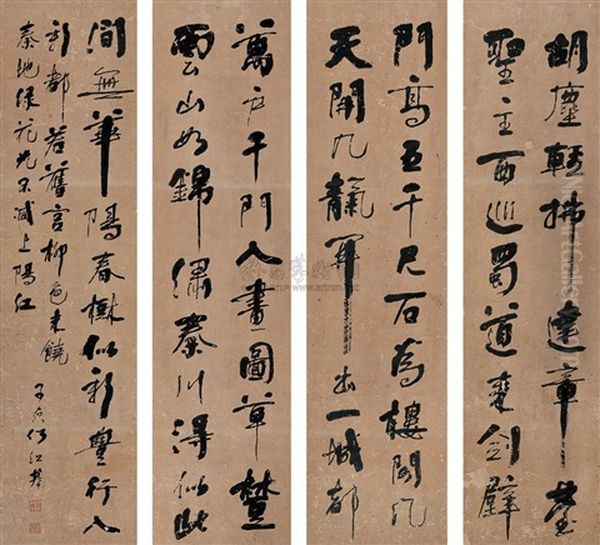 胡塵輕拂建章臺
聖主西巡蜀道來劍壁
門高五千尺石為樓閣九
天開九靝開出一城都
萬戶千門入畫圖草樹
雲山如錦繡秦川得似此
間無華陽春樹似新豐行入
新都若舊宮柳色未饒
秦地綠花光不減上陽紅
子貞何紹基